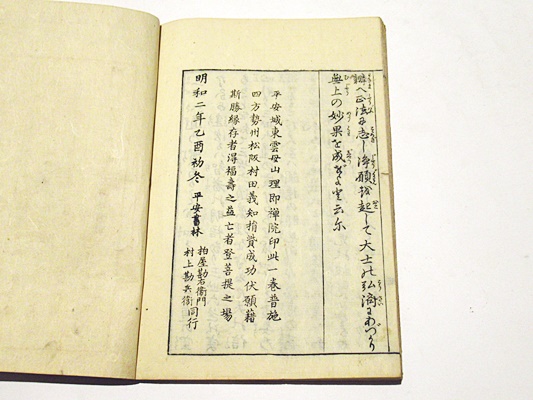 正法に志し浄願を起して大士の弘済にあつかり
無上の妙果を成せんと云尓
平安城東雲母山理即禅院印此一巻普施
四方勢州松阪村田義知捐貲成功伏願藉
斯勝縁存者得福壽之益亡者登菩提之場
明和二年乙酉初冬 平安書林
柏屋勘右衛門
村上勘兵衛同行